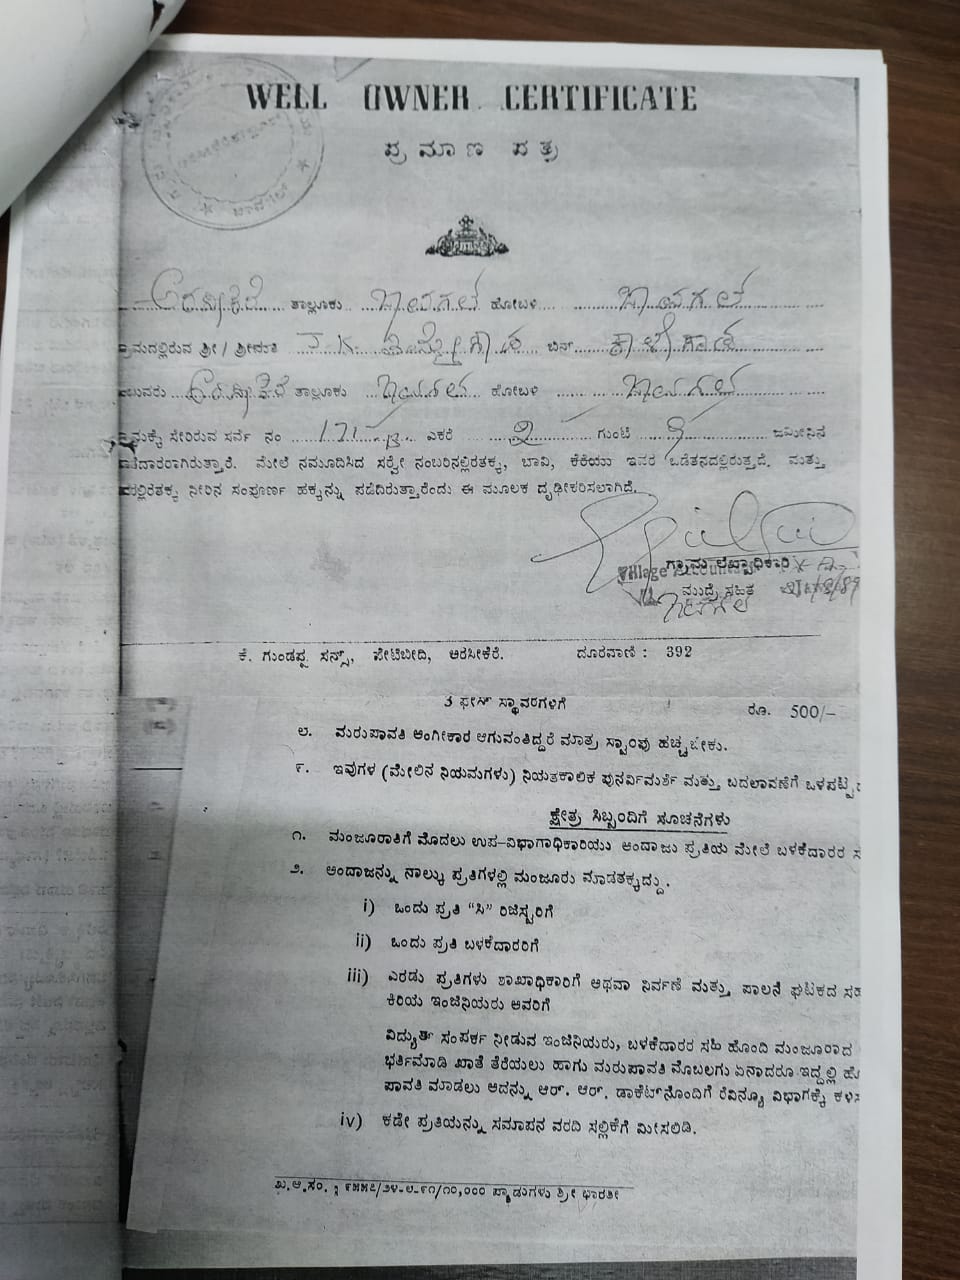 WELL OWNER CERTIFICATE
ಪ್ರಮಾಣ ಪತ್ರ
ತಾಲ್ಲೂಕು ಜಾವಗಲ್ ಹೋಬಳಿ ಜಾವಗಲ್
ಗ್ರಾಮದಲ್ಲಿರುವ ಶ್ರೀ / ಶ್ರೀಮತಿ ಬಿನ್
ತಾಲ್ಲೂಕು ಜಾವಗಲ್ ಹೋಬಳಿ ಜಾವಗಲ್
ಸೇರಿರುವ ಸರ್ವೆ ನಂ 171 ಎಕರೆ 2 ಗುಂಟೆ ಜಮೀನಿನ
ಮೇಲೆ ನಮೂದಿಸಿದ ಸರ್‍ವೇ ನಂಬರಿನಲ್ಲಿರತಕ್ಕ, ಬಾವಿ, ಇವರ ಒಡೆತನದಲ್ಲಿರುತ್ತದೆ. ಮತ್ತು
ನೀರಿನ ಸಂಪೂರ್ಣ ಹಕ್ಕನ್ನು ಪಡೆದಿರುತ್ತಾರೆಂದು ಈ ಮೂಲಕ ದೃಢೀಕರಿಸಲಾಗಿದೆ.
ಗ್ರಾಮ ಲೆಖ್ಖಾಧಿಕಾರಿ
Village Accountant
ಮುದ್ರೆ ಸಹಿತ
ಜಾವಗಲ್
ಕೆ. ಗುಂಡಪ್ಪ ಸನ್ಸ್, ಪೇಟೆಬೀದಿ, ಅರಸೀಕೆರೆ. ದೂರವಾಣಿ : 392
3 ಫೇಸ್ ಸ್ಥಾವರಗಳಿಗೆ ರೂ. 500/-
೮. ಮರುಪಾವತಿ ಅಂಗೀಕಾರ ಆಗುವಂತಿದ್ದರೆ ಮಾತ್ರ ಸ್ಟಾಂಪು ಹಚ್ಚಬೇಕು.
೯. ಇವುಗಳ (ಮೇಲಿನ ನಿಯಮಗಳು) ನಿಯತಕಾಲಿಕ ಪುನರ್ವಿಮರ್ಶೆ ಮತ್ತು ಬದಲಾವಣೆಗೆ ಒಳಪಟ್ಟ
ಕ್ಷೇತ್ರ ಸಿಬ್ಬಂದಿಗೆ ಸೂಚನೆಗಳು
೧. ಮಂಜೂರಾತಿಗೆ ಮೊದಲು ಉಪ-ವಿಭಾಗಾಧಿಕಾರಿಯು ಅಂದಾಜು ಪ್ರತಿಯ ಮೇಲೆ ಬಳಕೆದಾರರ ಸ
೨. ಅಂದಾಜನ್ನು ನಾಲ್ಕು ಪ್ರತಿಗಳಲ್ಲಿ ಮಂಜೂರು ಮಾಡತಕ್ಕದ್ದು.
i) ಒಂದು ಪ್ರತಿ “ಸಿ” ರಿಜಿಸ್ಟರಿಗೆ
ii) ಒಂದು ಪ್ರತಿ ಬಳಕೆದಾರರಿಗೆ
iii) ಎರಡು ಪ್ರತಿಗಳು ಶಾಖಾಧಿಕಾರಿಗೆ ಅಥವಾ ನಿರ್ವಹಣೆ ಮತ್ತು ಪಾಲನೆ ಘಟಕದ ಸಹ
ಕಿರಿಯ ಇಂಜಿನಿಯರು ಅವರಿಗೆ
ವಿದ್ಯುತ್ ಸಂಪರ್ಕ ನೀಡುವ ಇಂಜಿನಿಯರು, ಬಳಕೆದಾರರ ಸಹಿ ಹೊಂದಿ ಮಂಜೂರಾದ
ಭರ್ತಿಮಾಡಿ ಖಾತೆ ತೆರೆಯಲು ಹಾಗು ಮರುಪಾವತಿ ಮೊಬಲಗು ಏನಾದರೂ ಇದ್ದಲ್ಲಿ ಹ
ಪಾವತಿ ಮಾಡಲು ಅದನ್ನು ಆರ್. ಆರ್. ಡಾಕೆಟ್‌ನೊಂದಿಗೆ ರೆವಿನ್ಯೂ ವಿಭಾಗಕ್ಕೆ ಕಳಿಸ
iv) ಕಡೇ ಪ್ರತಿಯನ್ನು ಸಮಾಪನ ವರದಿ ಸಲ್ಲಿಕೆಗೆ ಮೀಸಲಿಡಿ.
ಖ.ಆ.ಸಂ. : ೯೫೫೭/೨೪-೮-೯೧/೧೦,೦೦೦ ಪ್ಯಾಡುಗಳು ಶ್ರೀ ಭಾರತೀ